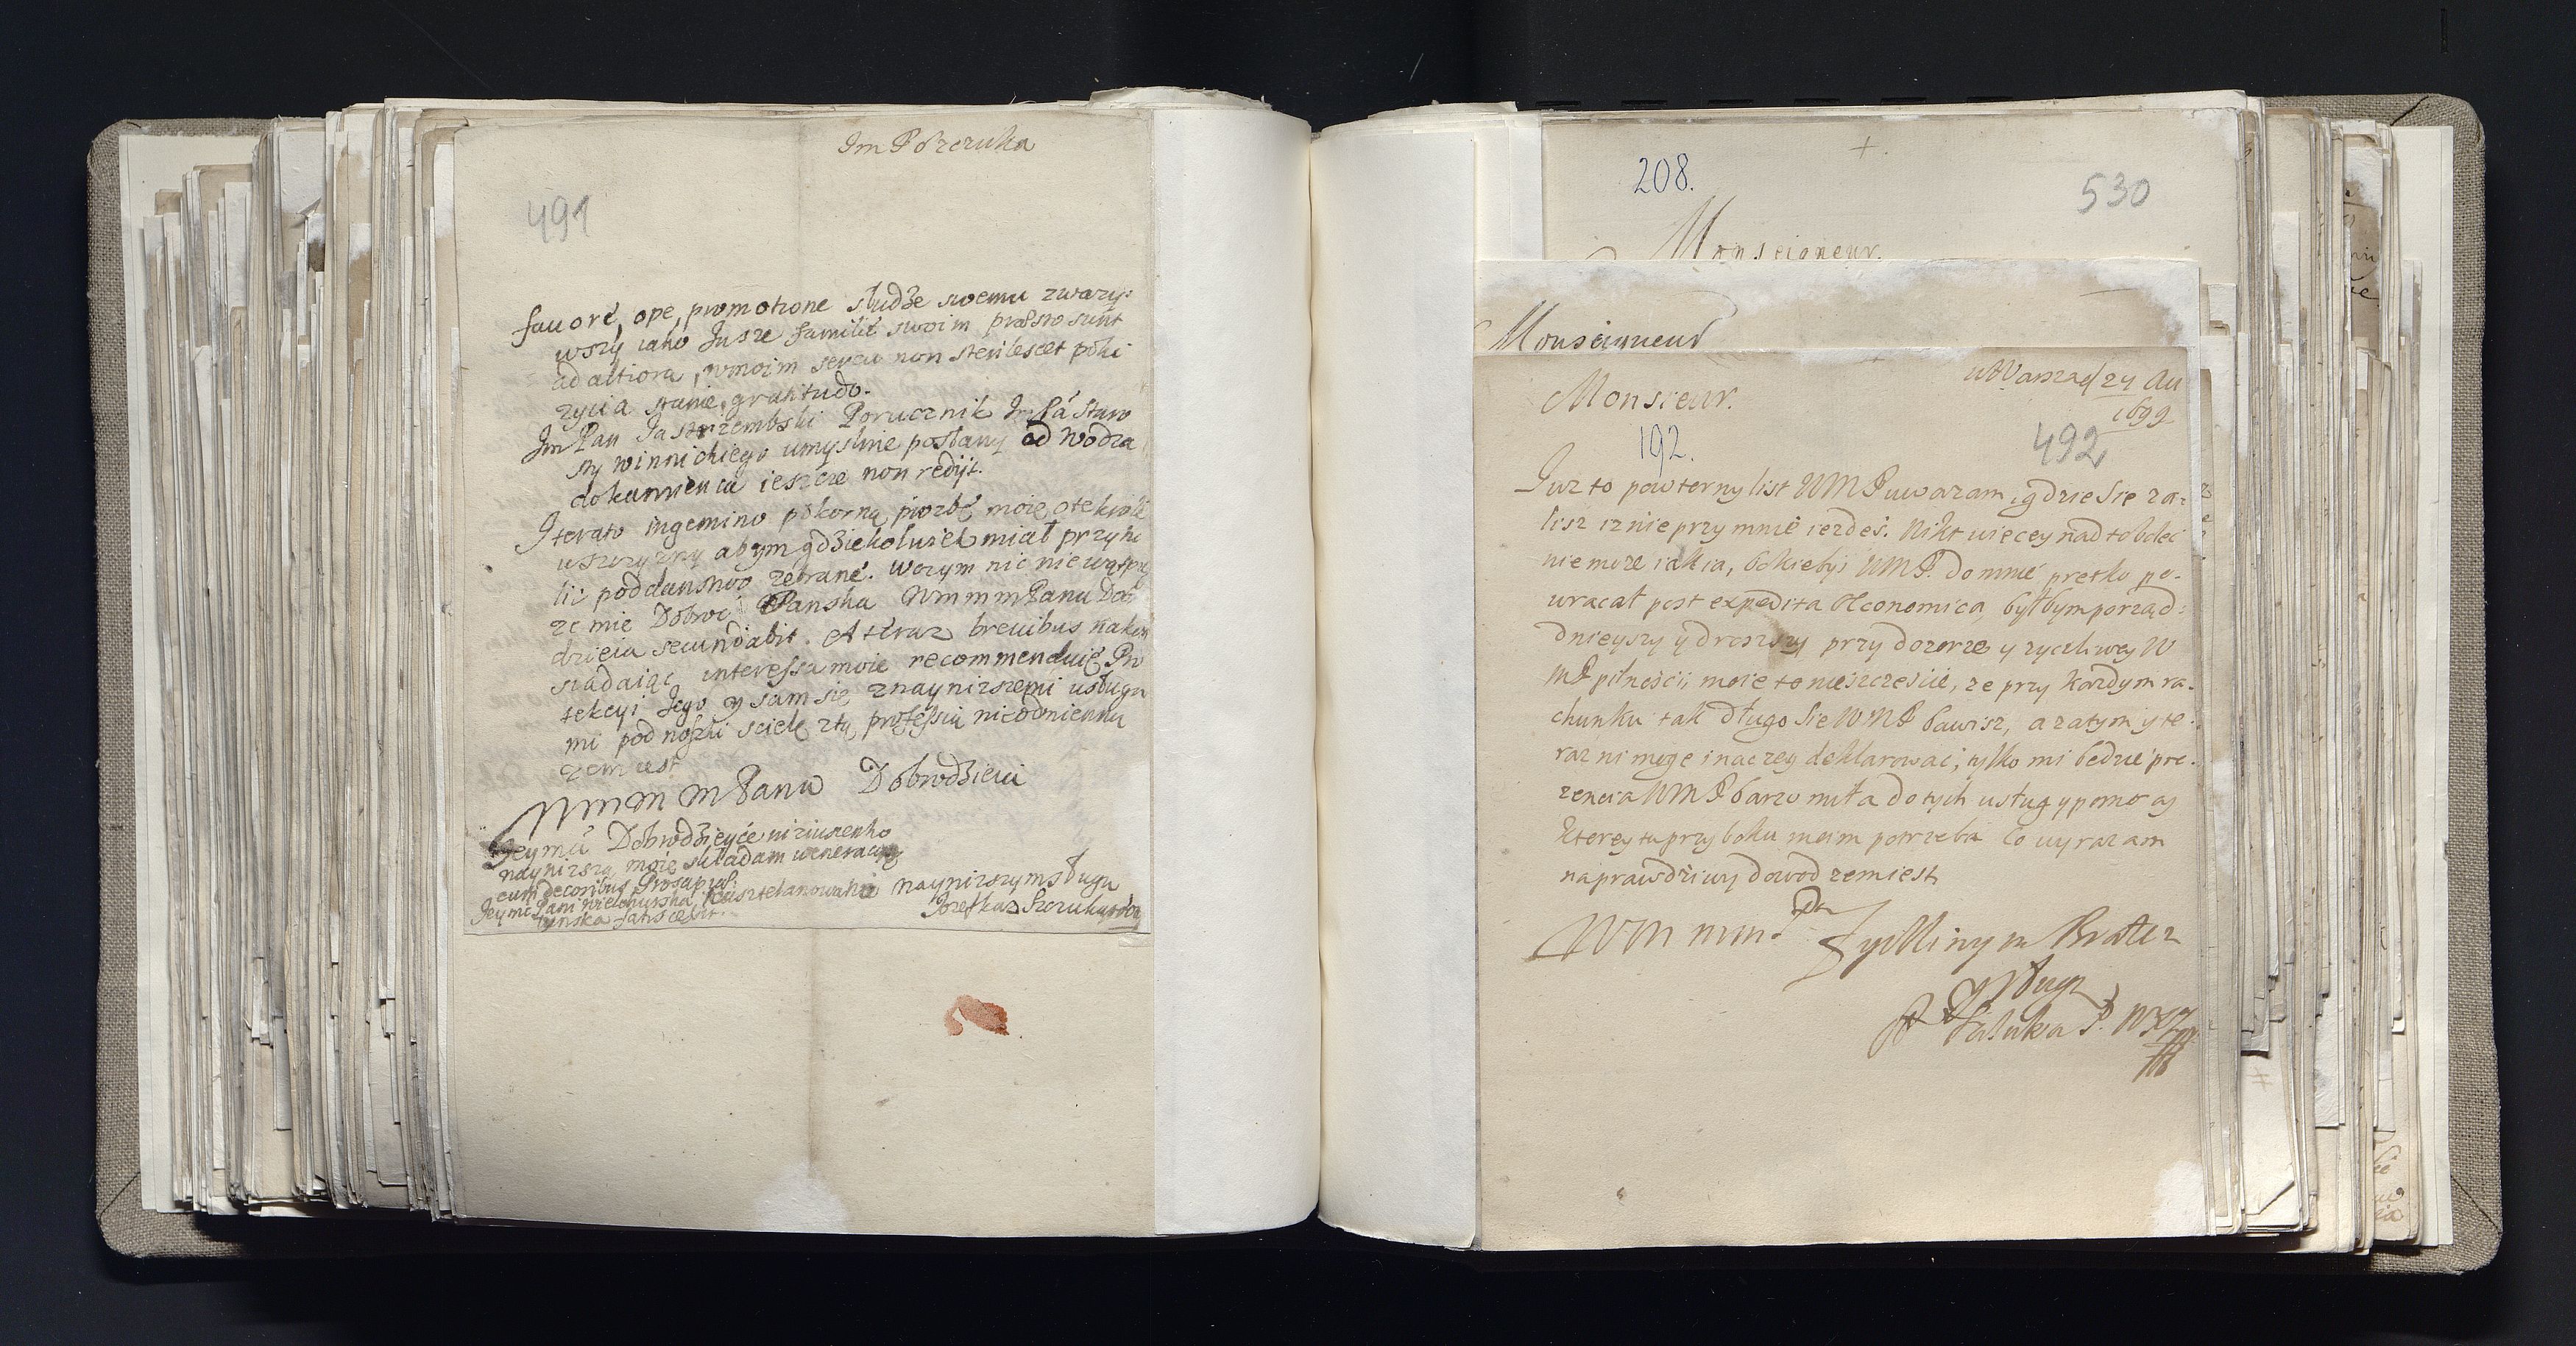 Im P Szczuka
491
favore, ope, promotione słudze swemu zwazy:
wszy iako Insze familie swoim præsto sunt
ad altiora, wmoim sercu non sterilescet poki
zycia stanie, gratitudo.
Im Pan Jastrzembski Porucznik Im Pá Staro
sty winnickiego umyslnie posłany od Wodza
do kamienca ieszcze non redijt.
Iterato ingemino pokorną prozbę moię otekwili
uszczyzny abym gdziekolwiek miał przyhe
lic poddanstwo zebrane. Wczym nic nie wątpie
ze mie Dobroc Panska Wm m m Panu Dob
dzieia secundabit. A teraz brevibus
skadaiąc interessa moie recommenduię Pro
tekcyi Jego y sam się znaynizszemi usługa
mi pod noszki scielę ztą professią nieodmienną
zem iest
Wm m m Panu Dobrodzieia
Jeymci Dobrodzieyce niziusenko
naynizszą moię składam weneracyą
cum decoribus Prosapiæ.
naynizszym sługą
208.
+
530
Monseigneur.
Monseigneur
Monsieur.
w Warszaej 24 Au
1699
192.
492
Iuz to powterny list WMP uwazam, gdzie sie za-
lisz iz nie przy mnie iezdes. Nikt wiecey nad to bolec
nie moze iak ia, bo kieby WMP. do mnie pretko po-
wracał post expedita Œconomica, byłbym porząd:
dnieyszy y drozszy przy dozorze y zyczliwey W
MP pilnosci, moie to nieszczescie, ze przy kazdym ra-
chunku tak długo sie WMP bawisz, a zatym y te-
raz ni moge inaczey deklarowac, tylko mi bedzie pre-
zencia WMP barzo miła do tych usług y pomocy
ktorey tu przy boku moim potrzeba Co wyrazam
na prawdziwy dowod zem iest
WM mm Pa
Zyczliwym Bratem
y sługą